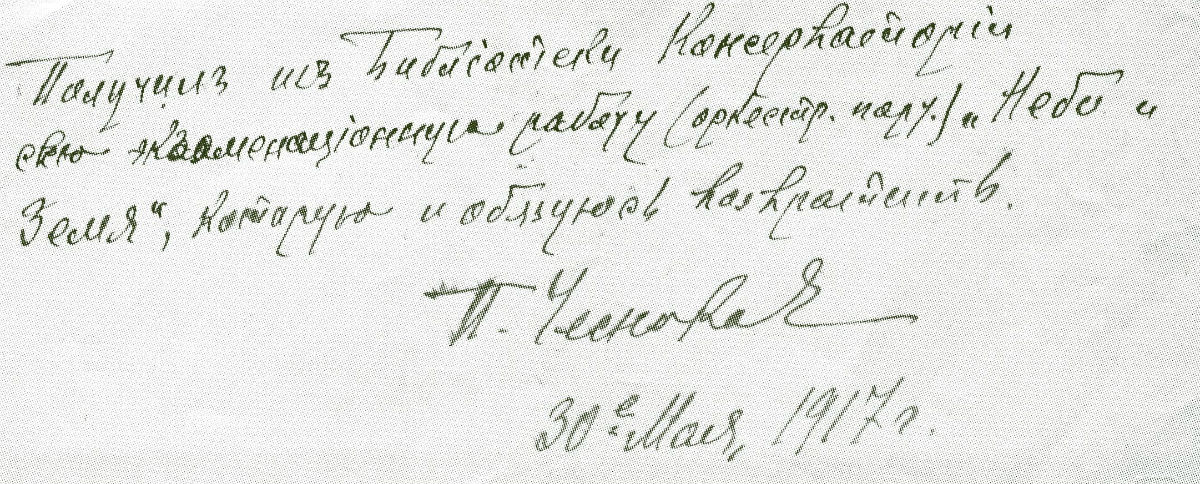 Получилъ изъ Библіотеки Консерваторіи
свою экзаменаціонную работу (оркестр. парт.) „Небо и
Земля“, которую и обязуюсь возвратить.
П. Чесноковъ
30е Мая, 1917 г.